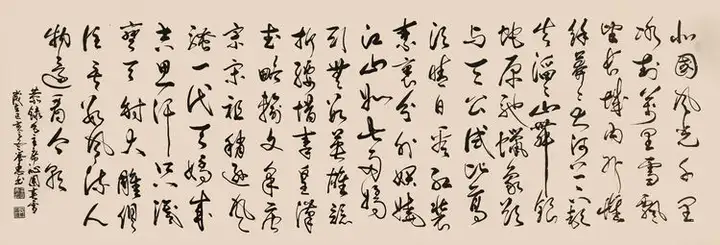 北國風光千里
冰封萬里雪飄
望長城內外惟
餘莽莽大河上下頓
失滔滔山舞銀
蛇原馳蠟象欲
与天公試比高
須晴日看紅裝
素裹分外妖嬈
江山如此多嬌
引無數英雄競
折腰惜秦皇漢
武略輸文采唐
宗宋祖稍遜風
騷一代天驕成
吉思汗只識
彎弓射大雕俱
往矣數風流人
物還看今朝
恭錄毛主席沁園春雪